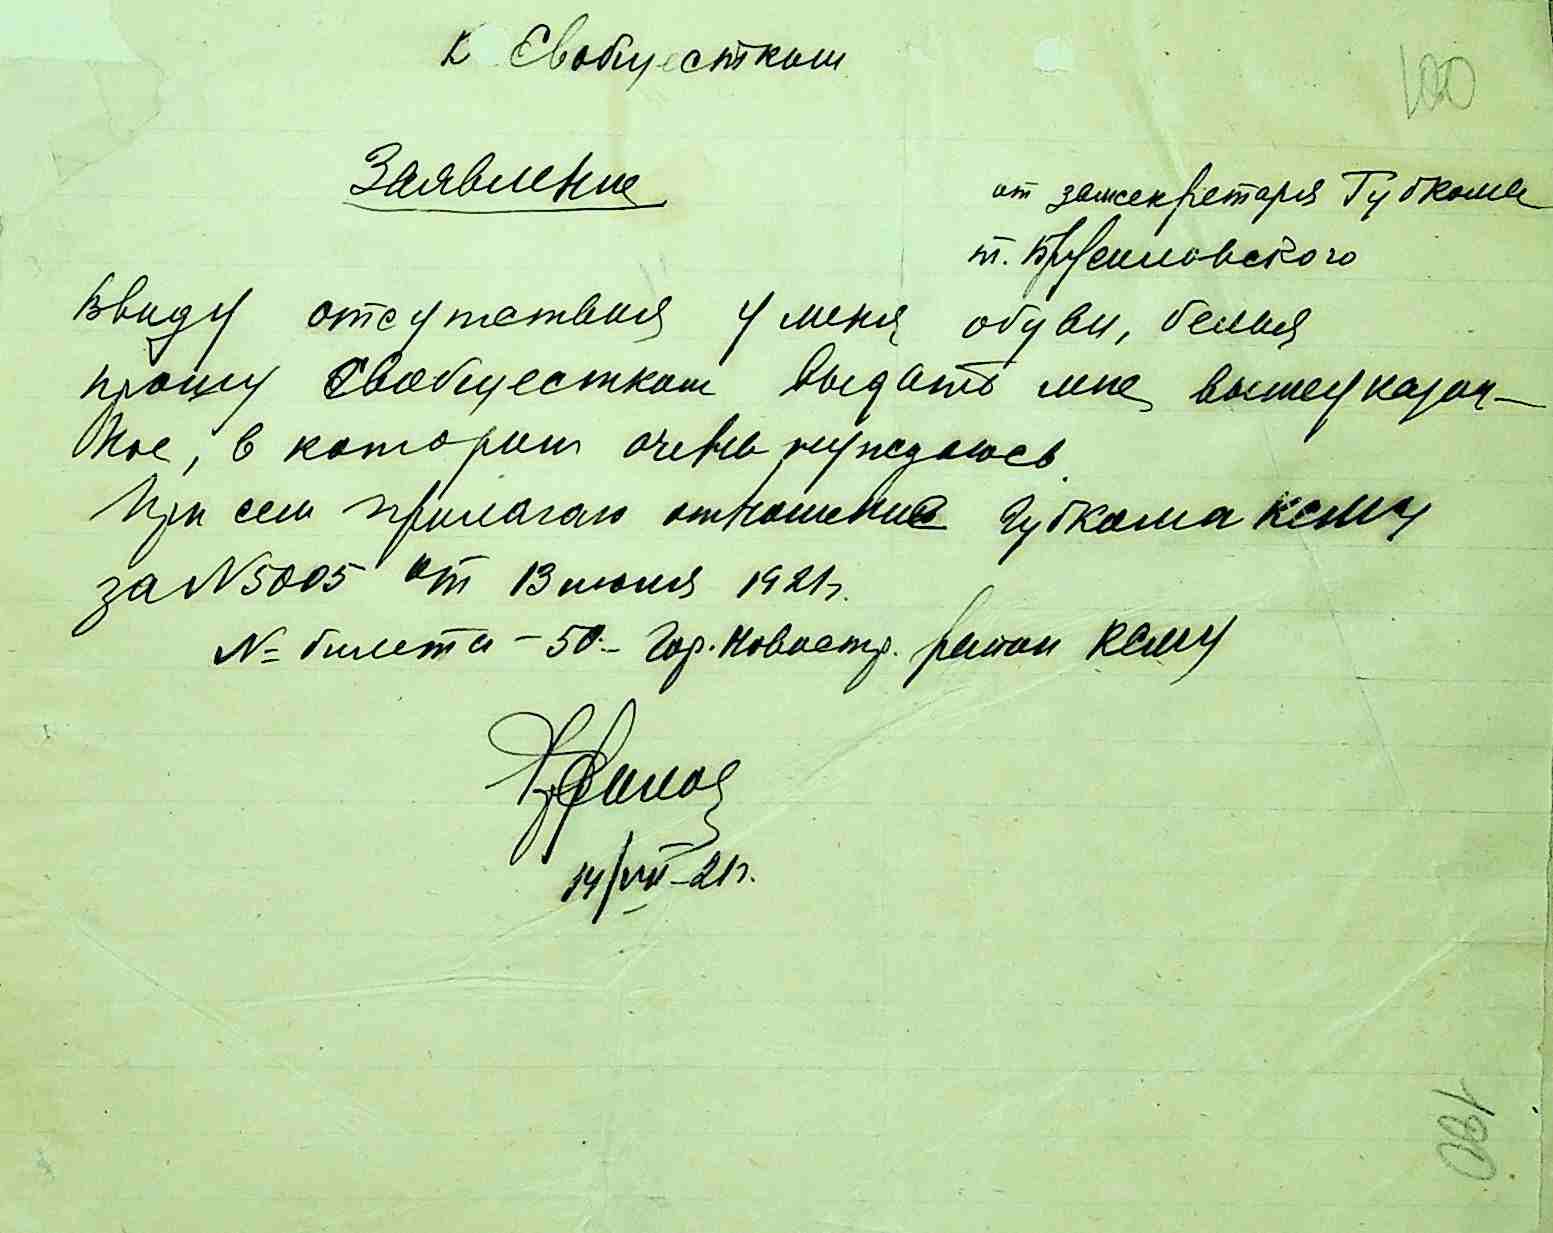 К Евобщестком
100
Заявление
от замсекретаря Губкома
т. Брусиловского
Ввиду отсутствия у меня обуви, белья
прошу Евобщестком выдать мне вышеуказан-
ное, в котором очень нуждаюсь.
При сем прилагаю отношение Губкома КСМУ
за N 5005 от 13 июля 1921г.
№ билета - 50 - Гор. район КСМУ
14/VII-21г.
190